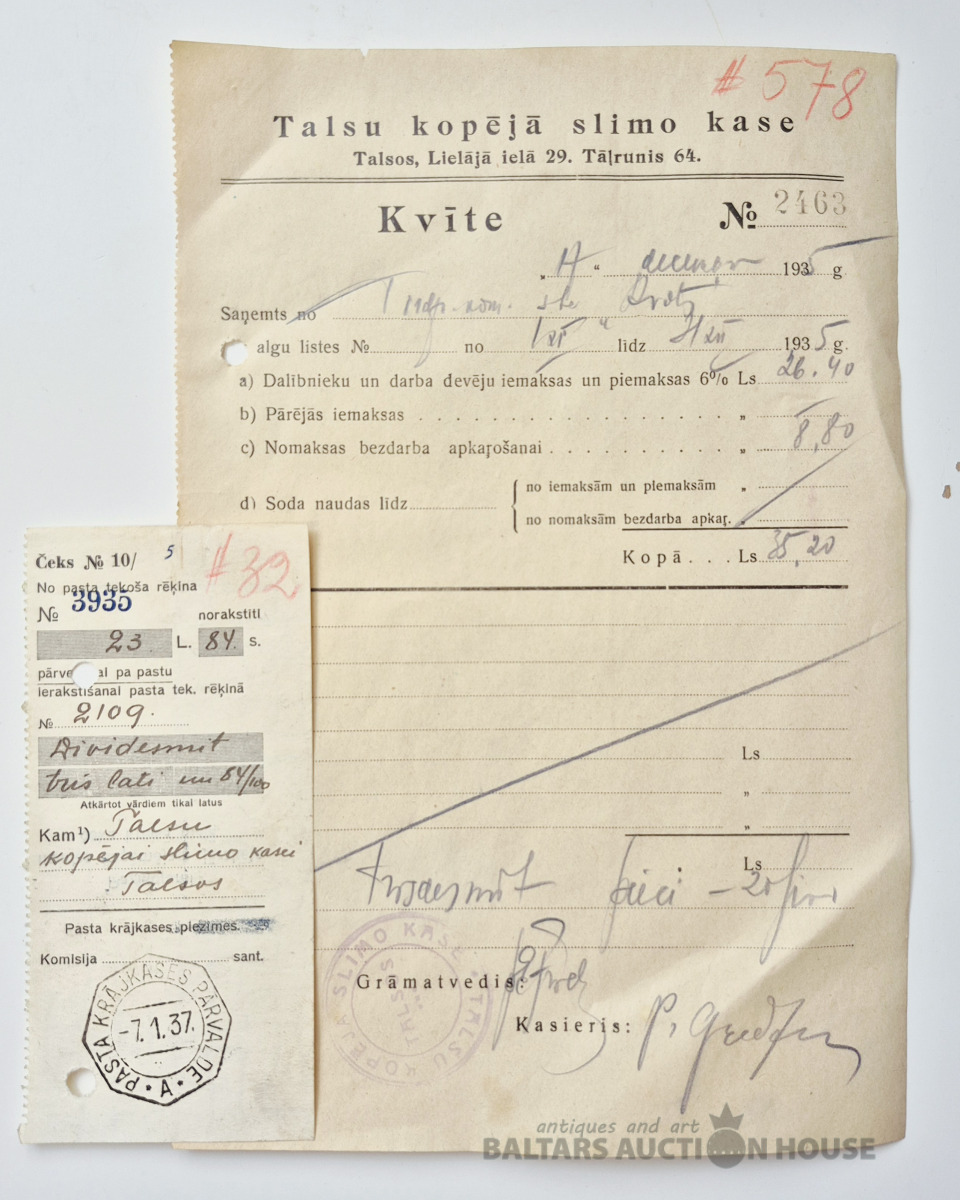 # 578
Talsu kopējā slimo kase
Talsos, Lielājā ielā 29. Tāļrunis 64.
Kvīte № 2463
„ “ 1935 g.
Saņemts no
algu listes № no 1 XI “ līdz 31 XII 1935 g.
a) Dalībnieku un darba devēju iemaksas un piemaksas 6% Ls 26.40
b) Pārējās iemaksas „
c) Nomaksas bezdarba apkaŗošanai „ 8,80
d) Soda naudas līdz
no iemaksām un piemaksām „
no nomaksām bezdarba apkaŗ. „
Kopā . . . Ls 35,20
Ls
„
„
Ls
Trīsdesmit pieci – 20
Grāmatvedis:
Kasieris: P.
KOPĒJĀ SLIMO KASE TALSU
TALSOS
Čeks № 10/ 5
# 32
No pasta tekoša rēķina
№ 3935 norakstīti
23 L. 84 s.
pārve al pa pastu
ierakstīšanai pasta tek. rēķinā
№ 2109.
Dividesmit
trīs lati un 84/100
Atkārtot vārdiem tikai latus
Kam¹) Talsu
kopējai slimo kasei
Talsos
Pasta krājkases piezīmes.
Komisija sant.
PASTA KRĀJKASES PĀRVALDE
-7.1.37.
* A *
antiques and art
BALTARS AUCTION HOUSE